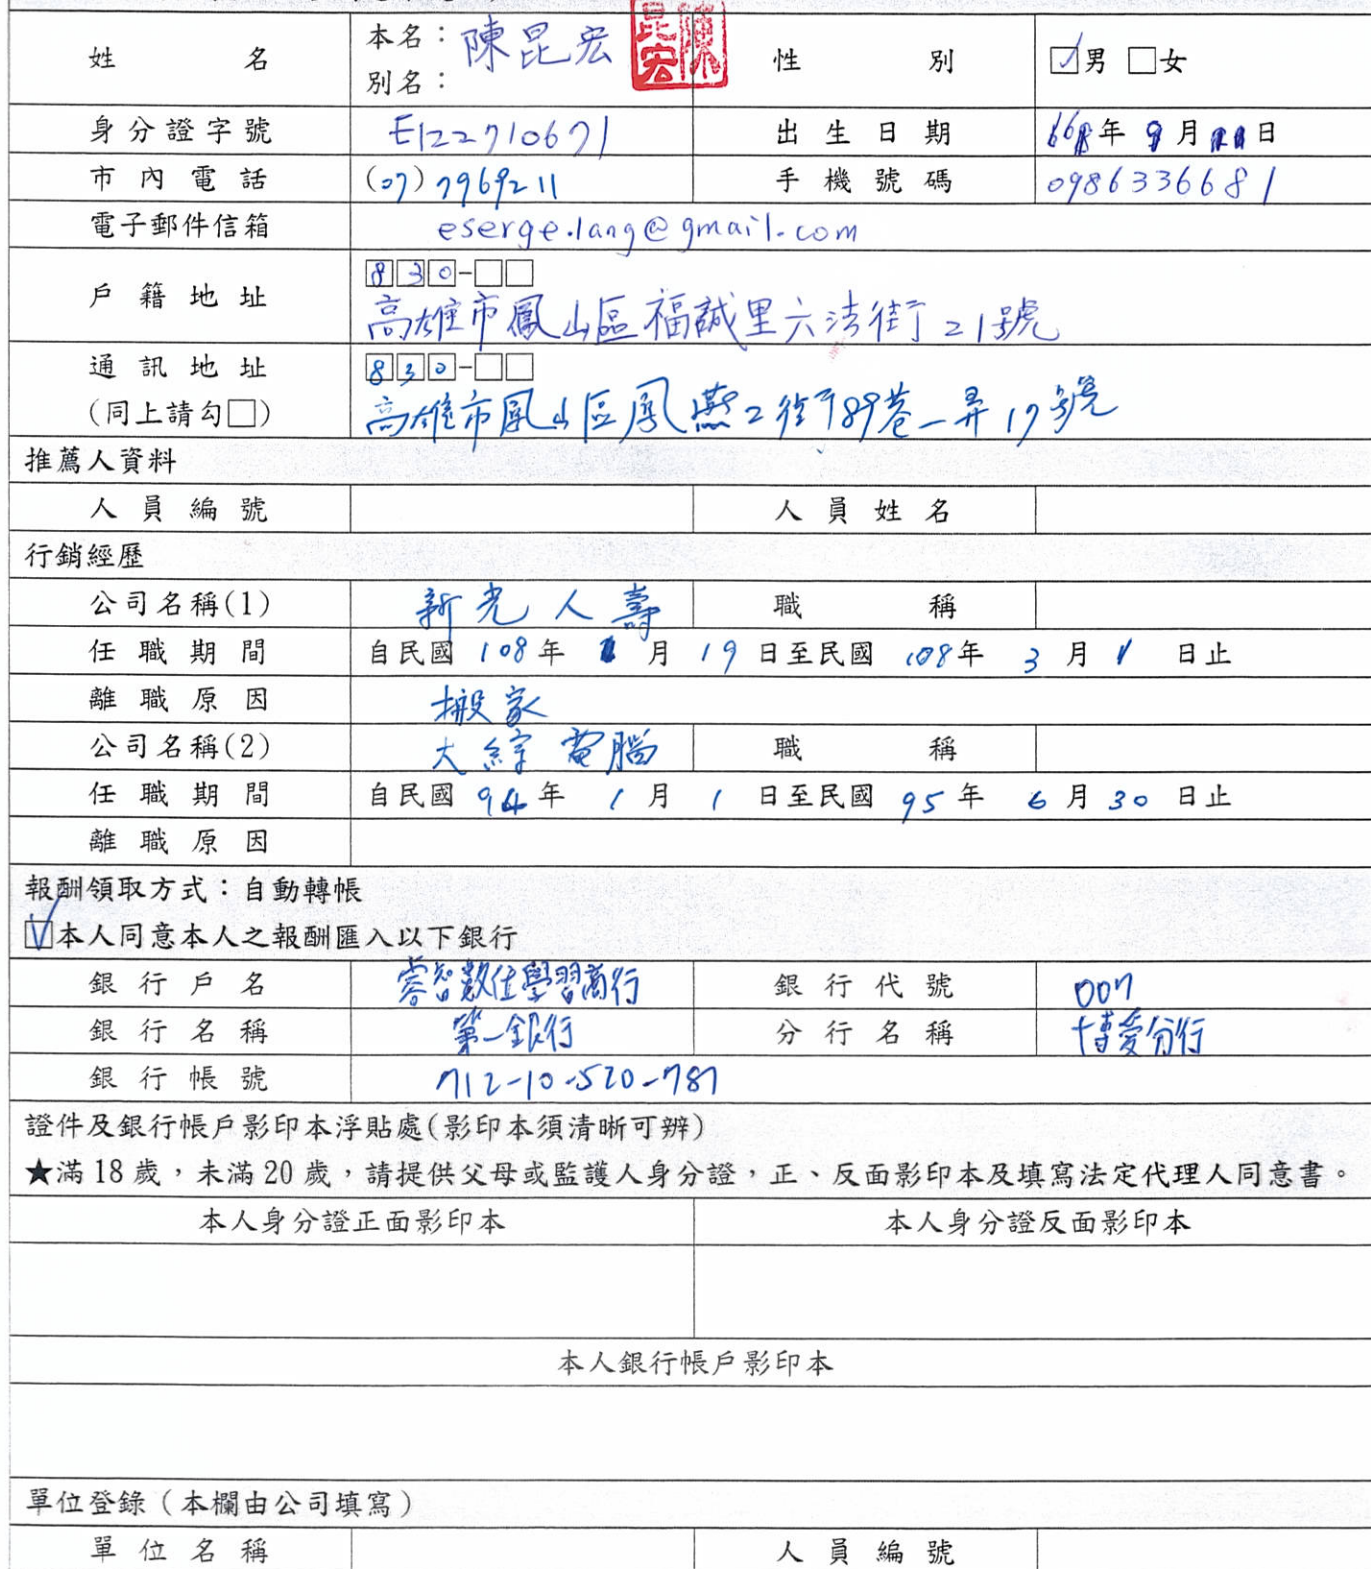 姓名 本名：陳昆宏 別名： 陳昆宏 性別 ☑男 □女
身分證字號 E122710671 出生日期 年 9月 日
市內電話 (07)7969211 手機號碼 0986336681
電子郵件信箱 eserge.lang@gmail.com
戶籍地址 830-□□
高雄市鳳山區福誠里六法街21號
通訊地址 830-□□
(同上請勾□) 高雄市鳳山區鳳燕2街789巷一弄17號
推薦人資料
人員編號 人員姓名
行銷經歷
公司名稱(1) 新光人壽 職稱
任職期間 自民國108年 月19日至民國108年3月1日止
離職原因 搬家
公司名稱(2) 大綜電腦 職稱
任職期間 自民國94年1月1日至民國95年6月30日止
離職原因
報酬領取方式：自動轉帳
☑本人同意本人之報酬匯入以下銀行
銀行戶名 睿智數位學習商行 銀行代號 007
銀行名稱 第一銀行 分行名稱 博愛分行
銀行帳號 712-10-520-787
證件及銀行帳戶影印本浮貼處(影印本須清晰可辨)
★滿18歲，未滿20歲，請提供父母或監護人身分證，正、反面影印本及填寫法定代理人同意書。
本人身分證正面影印本 本人身分證反面影印本
本人銀行帳戶影印本
單位登錄（本欄由公司填寫）
單位名稱 人員編號